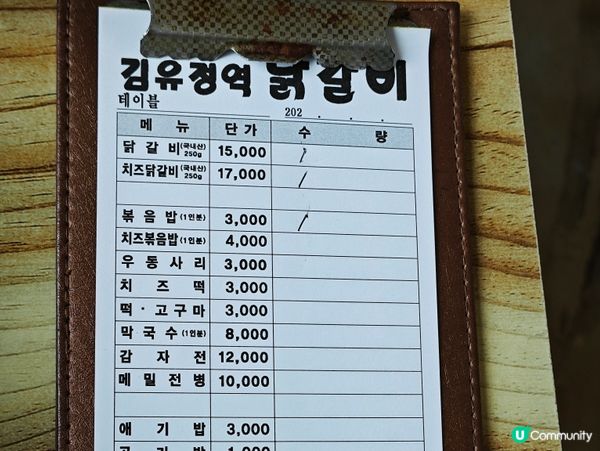 김유정역 닭갈비
테이블 202 . . .
메 뉴 단 가 수 량
닭 갈 비 (국내산) 250g 15,000 /
치즈닭갈비 (국내산) 250g 17,000 /
볶 음 밥 (1인분) 3,000 /
치즈볶음밥 (1인분) 4,000
우 동 사 리 3,000
치 즈 떡 3,000
떡 · 고 구 마 3,000
막 국 수 (1인분) 8,000
감 자 전 12,000
메 밀 전 병 10,000
애 기 밥 3,000
공 기 밥 1,000
U Community